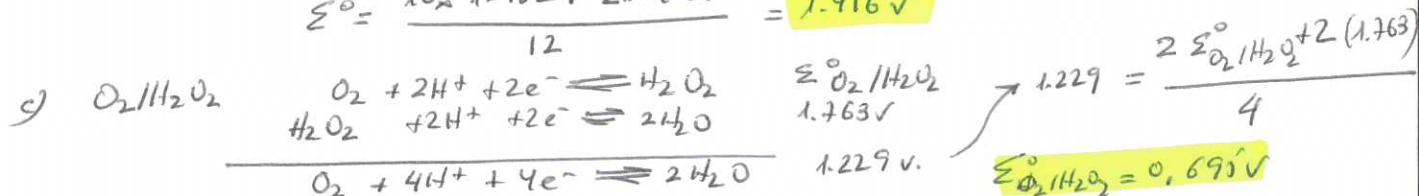 Σ° = ――― / 12 = 1.916 V
c) O₂/H₂O₂ O₂ + 2H⁺ + 2e⁻ ⇌ H₂O₂ Σ°O₂/H₂O₂
H₂O₂ + 2H⁺ + 2e⁻ ⇌ 2H₂O 1.763 V
O₂ + 4H⁺ + 4e⁻ ⇌ 2H₂O 1.229 V.
→ 1.229 = (2 Σ°O₂/H₂O₂ + 2 (1.763)) / 4
Σ°O₂/H₂O₂ = 0,695 V